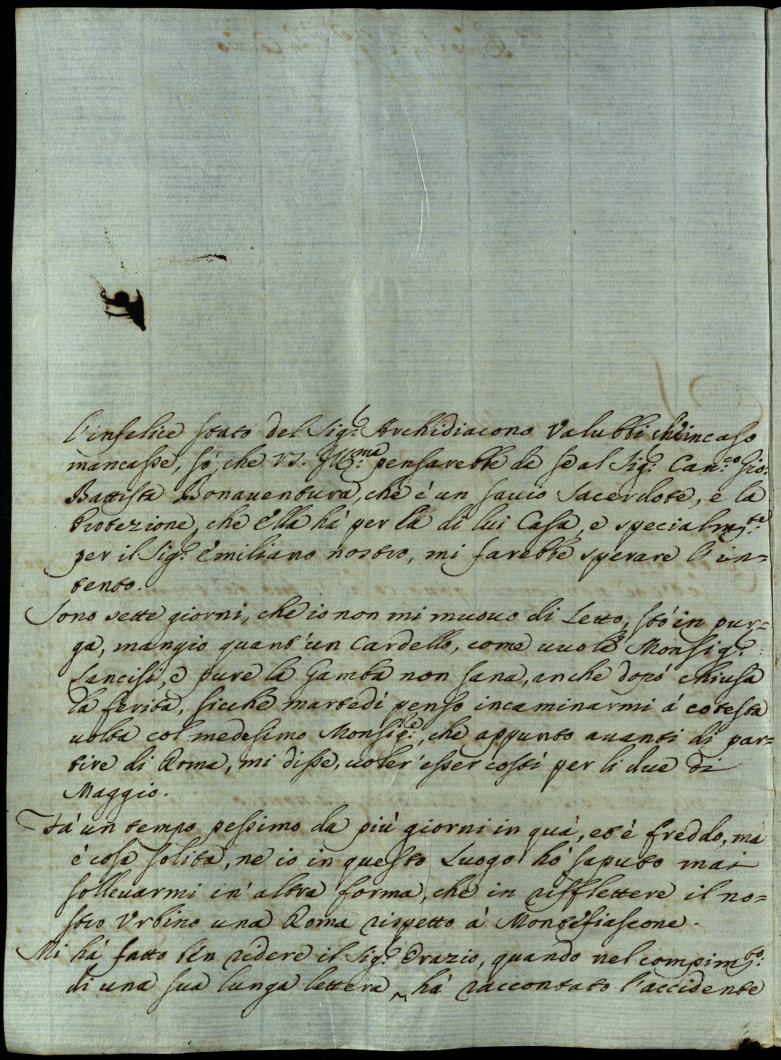 l'infelice stato del Sig.r Archidiacono Valubbi ch'in caso
mancasse, sò, che V.S. Ill.ma pensarebbe da se al Sig.r Can.co Gio:
Battista Bonaventura, che è un savio Sacerdote, e la
Protezione, che Ella hà per la di lui Casa, e specialm.te
per il Sig.r Emiliano nostro, mi farebbe sperare l'in=
tento.
Sono sette giorni, che io non mi muovo di Letto, stò in pur=
ga, mangio quant'un Cardello, come vuole Monsig.r
Lancisi, e pure la Gamba non sana, anche dopò chiusa
la ferita, sicche martedì penso incaminarmi à cotesta
volta col medesimo Monsig.re, che appunto avanti di par=
tire di Roma, mi disse, voler'esser costì per li due di
Maggio.
Fà un tempo pessimo da più giorni in quà, et è freddo, mà
è cosa solita, ne io in questo Luogo hò saputo mai
sollevarmi in altra forma, che in rifflettere il no=
stro Urbino una Roma rispetto à Montefiascone.
Mi hà fatto ben ridere il Sig.r Orazio, quando nel compim.to
di una sua lunga lettera, hà raccontato l'accidente